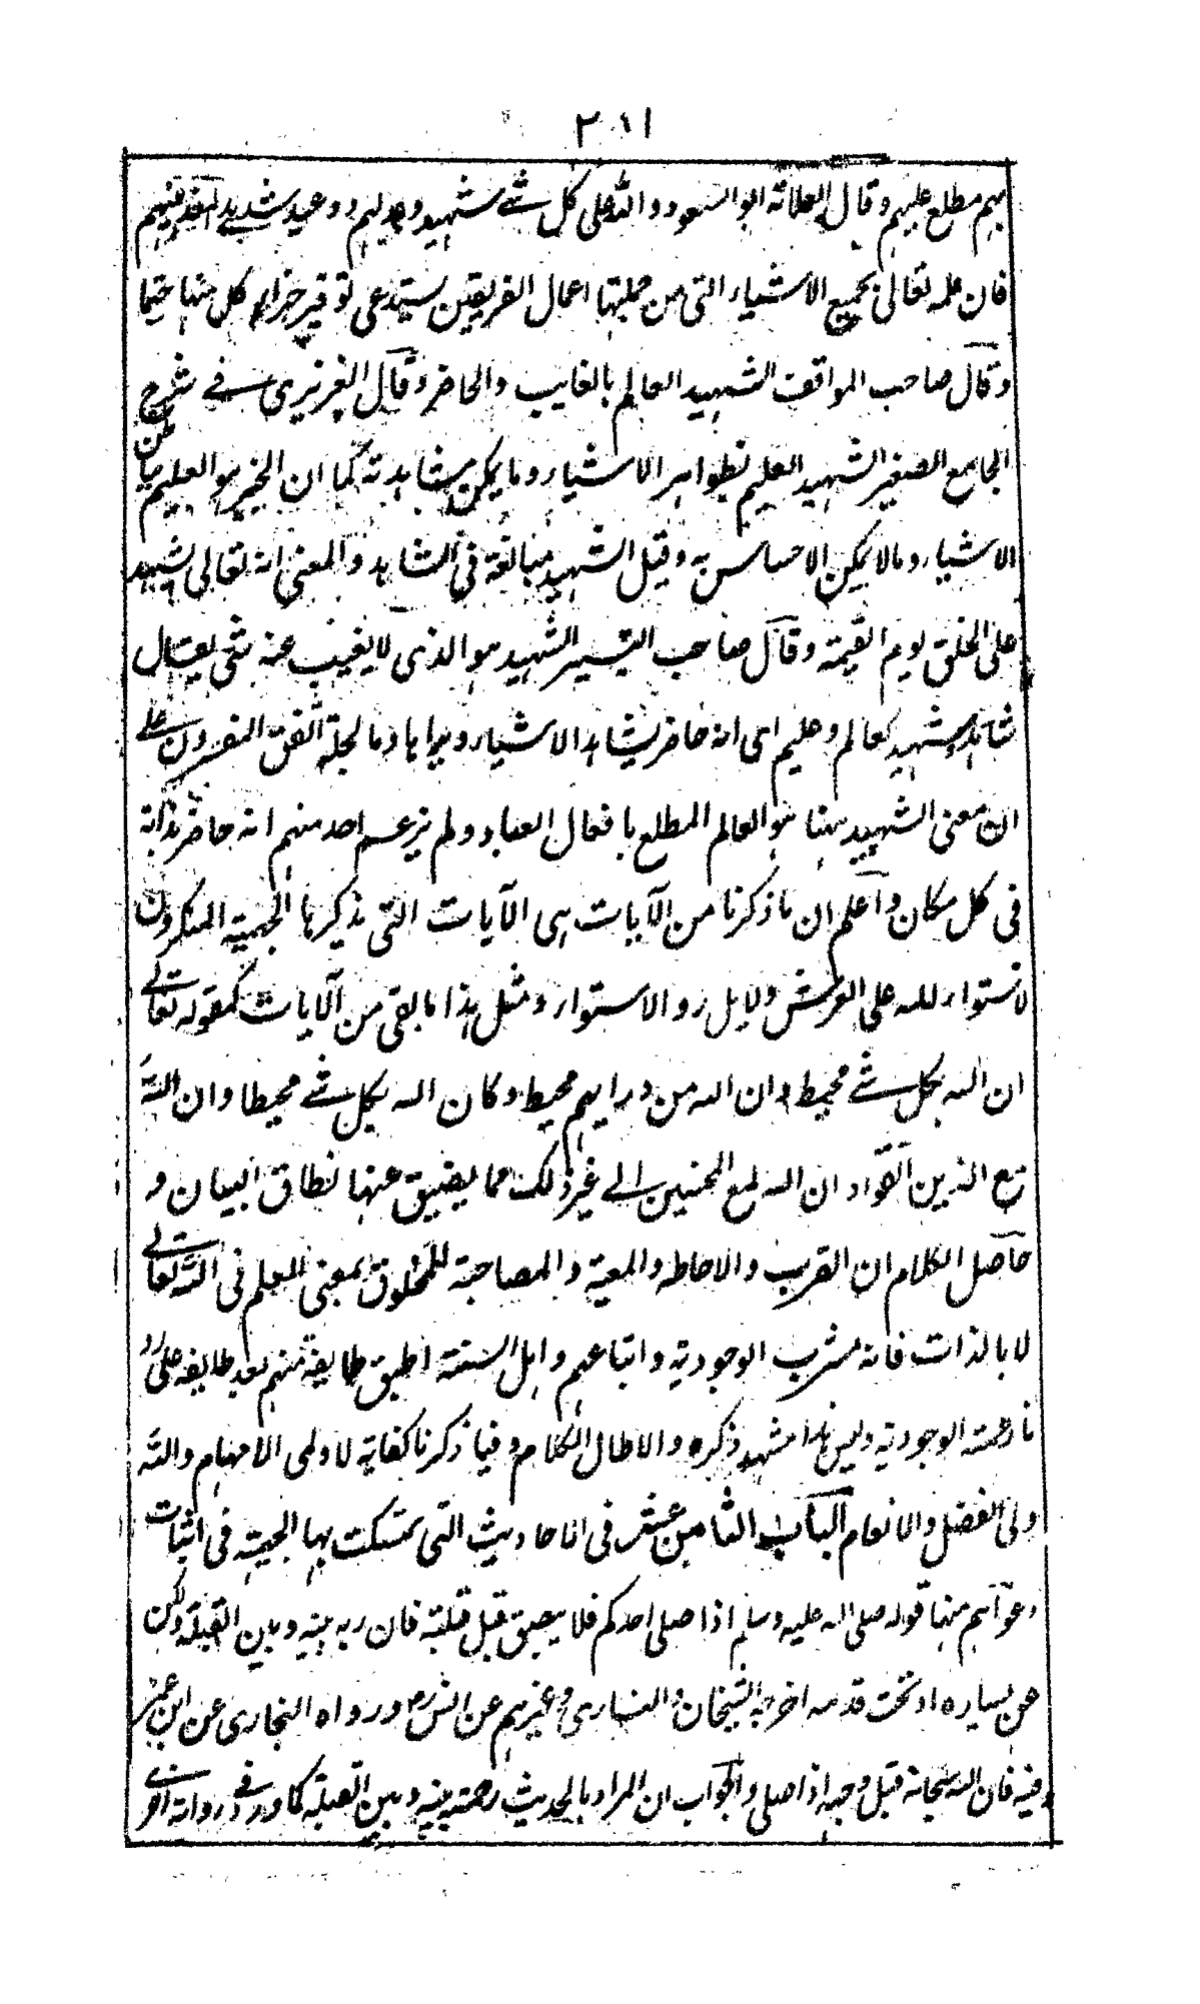 ٢٠١١
بهم مطلع عليهم وقال العلامة ابو السعود والله على كل شئ شهيد وعد لهم ووعيد شديد
فان علمه تعالى بجميع الاشياء التى من جملتها اعمال الفريقين يستدعى توفير جزاء كل منها حتما
وقال صاحب المواقف الشهيد العالم بالغايب والحاضر وقال العزيزى فے شرح
الجامع الصغير الشهيد العليم بظواهر الاشياء وما يمكن مشاهدته كما ان الخبير هو العليم بباطن
الاشياء ومالا يمكن الاحساس به وقيل الشهيد مبالغة فى الشاهد والمعنى انه تعالى الشهيد
على الخلق يوم القيمة وقال صاحب التيسير الشهيد هو الذى لا يغيب عنه شئ يقال
شاهد وشهيد كعالم وعليم اى انه حاضر يشاهد الاشياء ويراها وبالجملة اتفق المفسرون على
ان معنى الشهيد ههنا هو العالم المطلع بافعال العباد ولم يزعم احد منهم انه حاضر بذاته
فى كل مكان واعلم ان ما ذكرنا من الآيات هى الآيات التى يذكرها الجهمية المنكرون
لاستواء الله على العرش ولا بل رد الاستواء ومثل هذا ما بقى من الآيات كقوله تعالے
ان الله بكل شے محيط وان الله من ورايهم محيط وكان الله بكل شے محيطا وان اللہ
مع الذين اتقوا وان الله لمع المحسنين الے غير ذلك مما يضيق عنها نطاق البيان و
حاصل الكلام ان القرب والاحاطه والمعية والمصاحبة للمخلوق بمعنى العلم فى اللہ تعالے
لا بالذات فانه مشرب الوجودية واتباعهم واهل السنة اطبق طايفة منهم بعد طايفه على رد
ما زعمته الوجودية وليس هذا مشهد ذكره والا طال الكلام وفيما ذكرنا كفاية لاولى الافهام واللہ
ولى الفضل والانعام الباب الثامن عشر فى الاحاديث التى تمسكت بها الجهمية فى اثبات
دعواهم منها قوله صلى الله عليه وسلم اذا صلى احدكم فلا يبصق قبل قبلته فان ربه بينه وبين القبلة ولكن
عن يساره او تحت قدمه اخرجه الشيخان والنسارى وغيرهم عن انس رض ورواه البخارى عن ابن عمر
وفيه فان الله سبحانه قبل وجهه اذا صلى والجواب ان المراد بالحديث رحمته بينه وبين القبلة كما ورد فے رواية اخرى